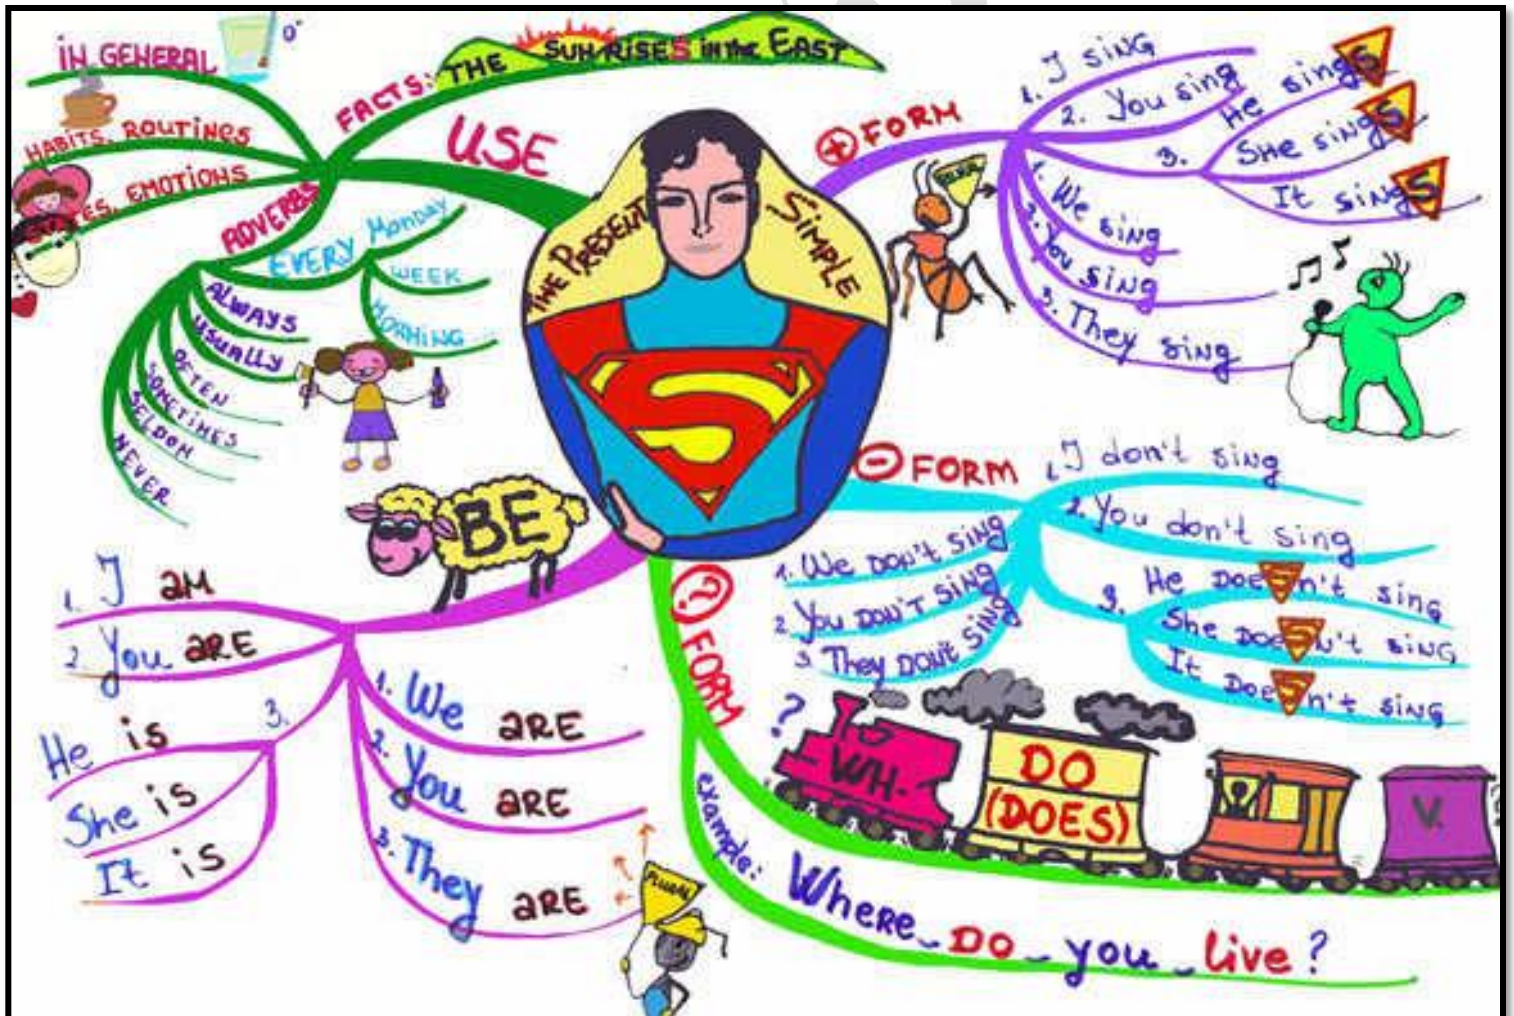 THE PRESENT SIMPLE
S
USE
FACTS: THE SUN RISES in the EAST
iN GENERAL
0°
HABITS, ROUTINES
STATES, EMOTIONS
ADVERBS
EVERY Monday
WEEK
MORNING
ALWAYS
USUALLY
OFTEN
SOMETIMES
SELDOM
NEVER
+ FORM
1. I SiNG
2. You sing
3.
He singS
SHe singS
It singS
1. We sing
2. You sing
3. They sing
- FORM
1. I don't sing
2. You don't sing
3.
He DOESn't sing
She DOESN't siNG
It DOESn't siNG
1. We DON't SiNG
2. You DON'T SiNG
3. They DON't SiNG
BE
1. I aM
2. You aRE
3.
He is
She is
It is
1. We aRE
2. You aRE
3. They aRE
PLURAL
? FORM
?
WH.
DO
(DOES)
V.
example: Where DO you live?